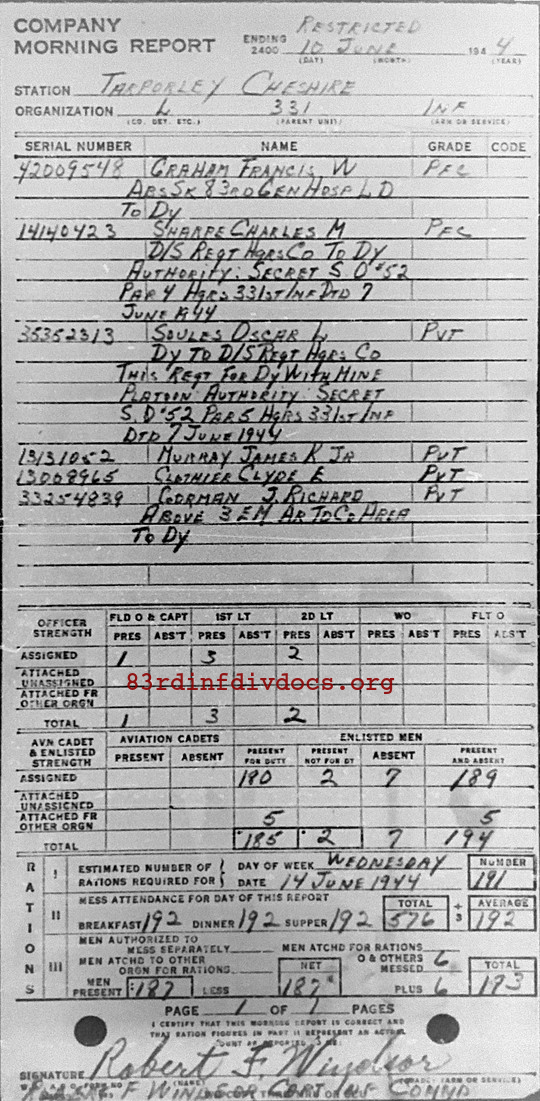 RESTRICTED
COMPANY
MORNING REPORT
ENDING 2400 10 JUNE 1944
(DAY) (MONTH) (YEAR)
STATION TARPORLEY CHESHIRE
ORGANIZATION L 331 INF
(CO. DET. ETC.) (PARENT UNIT) (ARM OR SERVICE)
SERIAL NUMBER NAME GRADE CODE
42009548 GRAHAM FRANCIS W PFC
ABS SK 83RD GEN HOSP LD
TO DY
14140423 SHARPE CHARLES M PFC
D/S REGT HQRS CO TO DY
AUTHORITY: SECRET S O #52
PAR 4 HQRS 331ST INF DTD 7
JUNE 1944
35352313 SOULES OSCAR L PVT
DY TO D/S REGT HQRS CO
THIS REGT FOR DY WITH MINE
PLATOON AUTHORITY: SECRET
S.O #52 PAR 5 HQRS 331ST INF
DTD 7 JUNE 1944
13131052 MURRAY JAMES K JR PVT
13008965 CLOTHIER CLYDE E PVT
33254839 GORMAN J. RICHARD PVT
ABOVE 3 EM AR TO CO AREA
TO DY
OFFICER STRENGTH FLD O & CAPT 1ST LT 2D LT WO FLT O
PRES ABS'T PRES ABS'T PRES ABS'T PRES ABS'T PRES ABS'T
ASSIGNED 1 3 2
ATTACHED UNASSIGNED
83rdinfdivdocs.org
ATTACHED FR OTHER ORGN
TOTAL 1 3 2
AVN CADET & ENLISTED STRENGTH AVIATION CADETS ENLISTED MEN
PRESENT ABSENT PRESENT FOR DUTY PRESENT NOT FOR DY ABSENT PRESENT AND ABSENT
ASSIGNED 180 2 7 189
ATTACHED UNASSIGNED
ATTACHED FR OTHER ORGN 5 5
TOTAL 185 2 7 194
RATIONS
I ESTIMATED NUMBER OF RATIONS REQUIRED FOR DAY OF WEEK WEDNESDAY NUMBER
DATE 14 JUNE 1944 191
II MESS ATTENDANCE FOR DAY OF THIS REPORT TOTAL ÷ 3 AVERAGE
BREAKFAST 192 DINNER 192 SUPPER 192 576 192
III MEN AUTHORIZED TO MESS SEPARATELY MEN ATCHD FOR RATIONS
MEN ATCHD TO OTHER ORGN FOR RATIONS NET O & OTHERS MESSED 6 TOTAL
MEN PRESENT 187 LESS 187 PLUS 6 193
PAGE 1 OF 1 PAGES
I CERTIFY THAT THIS MORNING REPORT IS CORRECT AND
THAT RATION FIGURES IN PART II REPRESENT AN ACTUAL
COUNT AS REPORTED
SIGNATURE Robert F Windsor
(NAME) (GRADE) (ARM OR SERVICE)
ROBERT F WINDSOR CAPT INF COMMD